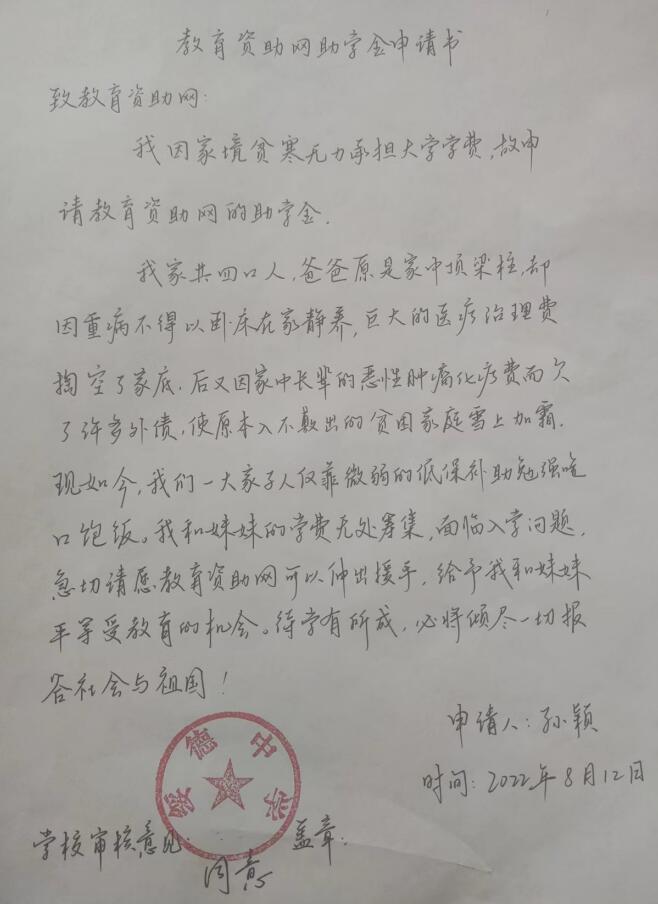 教育资助网助学金申请书
致教育资助网:
我因家境贫寒无力承担大学学费,故申
请教育资助网的助学金.
我家共四口人,爸爸原是家中顶梁柱,却
因重病不得以卧床在家静养,巨大的医疗治理费
掏空了家底.后又因家中长辈的恶性肿瘤化疗费而欠
了许多外债,使原本入不敷出的贫困家庭雪上加霜.
现如今,我们一大家子人仅靠微弱的低保补助勉强吃
口饱饭。我和妹妹的学费无处筹集,面临入学问题.
急切请愿教育资助网可以伸出援手,给予我和妹妹
平等受教育的机会。待学有所成,必将倾尽一切报
答社会与祖国!
申请人:孙颖
时间:2022年8月12日
绥德中学
学校审核意见: 盖章:
同意